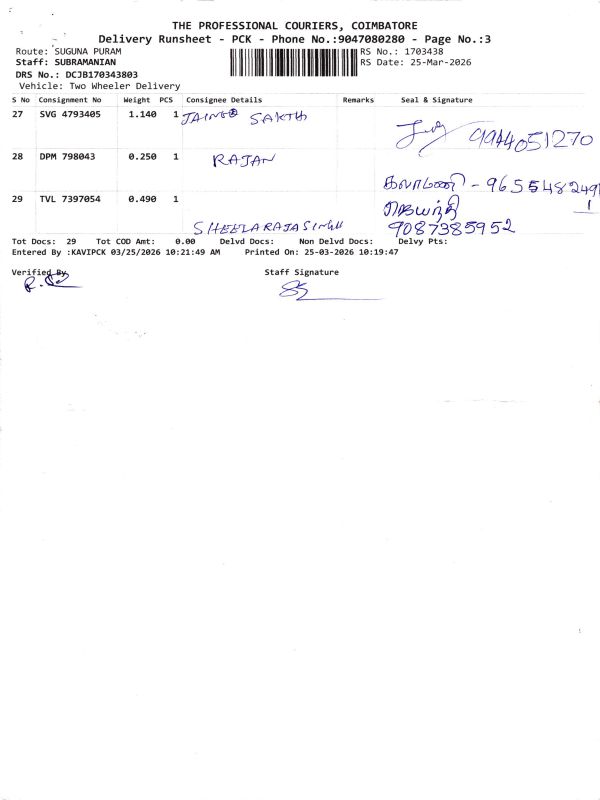 THE PROFESSIONAL COURIERS, COIMBATORE
Delivery Runsheet - PCK - Phone No.:9047080280 - Page No.:3
Route: SUGUNA PURAM
RS No.: 1703438
Staff: SUBRAMANIAN
RS Date: 25-Mar-2026
DRS No.: DCJB170343803
Vehicle: Two Wheeler Delivery
S No Consignment No Weight PCS Consignee Details Remarks Seal & Signature
27 SVG 4793405 1.140 1 SAKTHI
9944051270
28 DPM 798043 0.250 1 RAJAN
கலாமணி - 9655482491
29 TVL 7397054 0.490 1
ஜெயந்தி
SHEELARAJASINGH 9087385952
Tot Docs: 29 Tot COD Amt: 0.00 Delvd Docs: Non Delvd Docs: Delvy Pts:
Entered By :KAVIPCK 03/25/2026 10:21:49 AM Printed On: 25-03-2026 10:19:47
Verified By Staff Signature